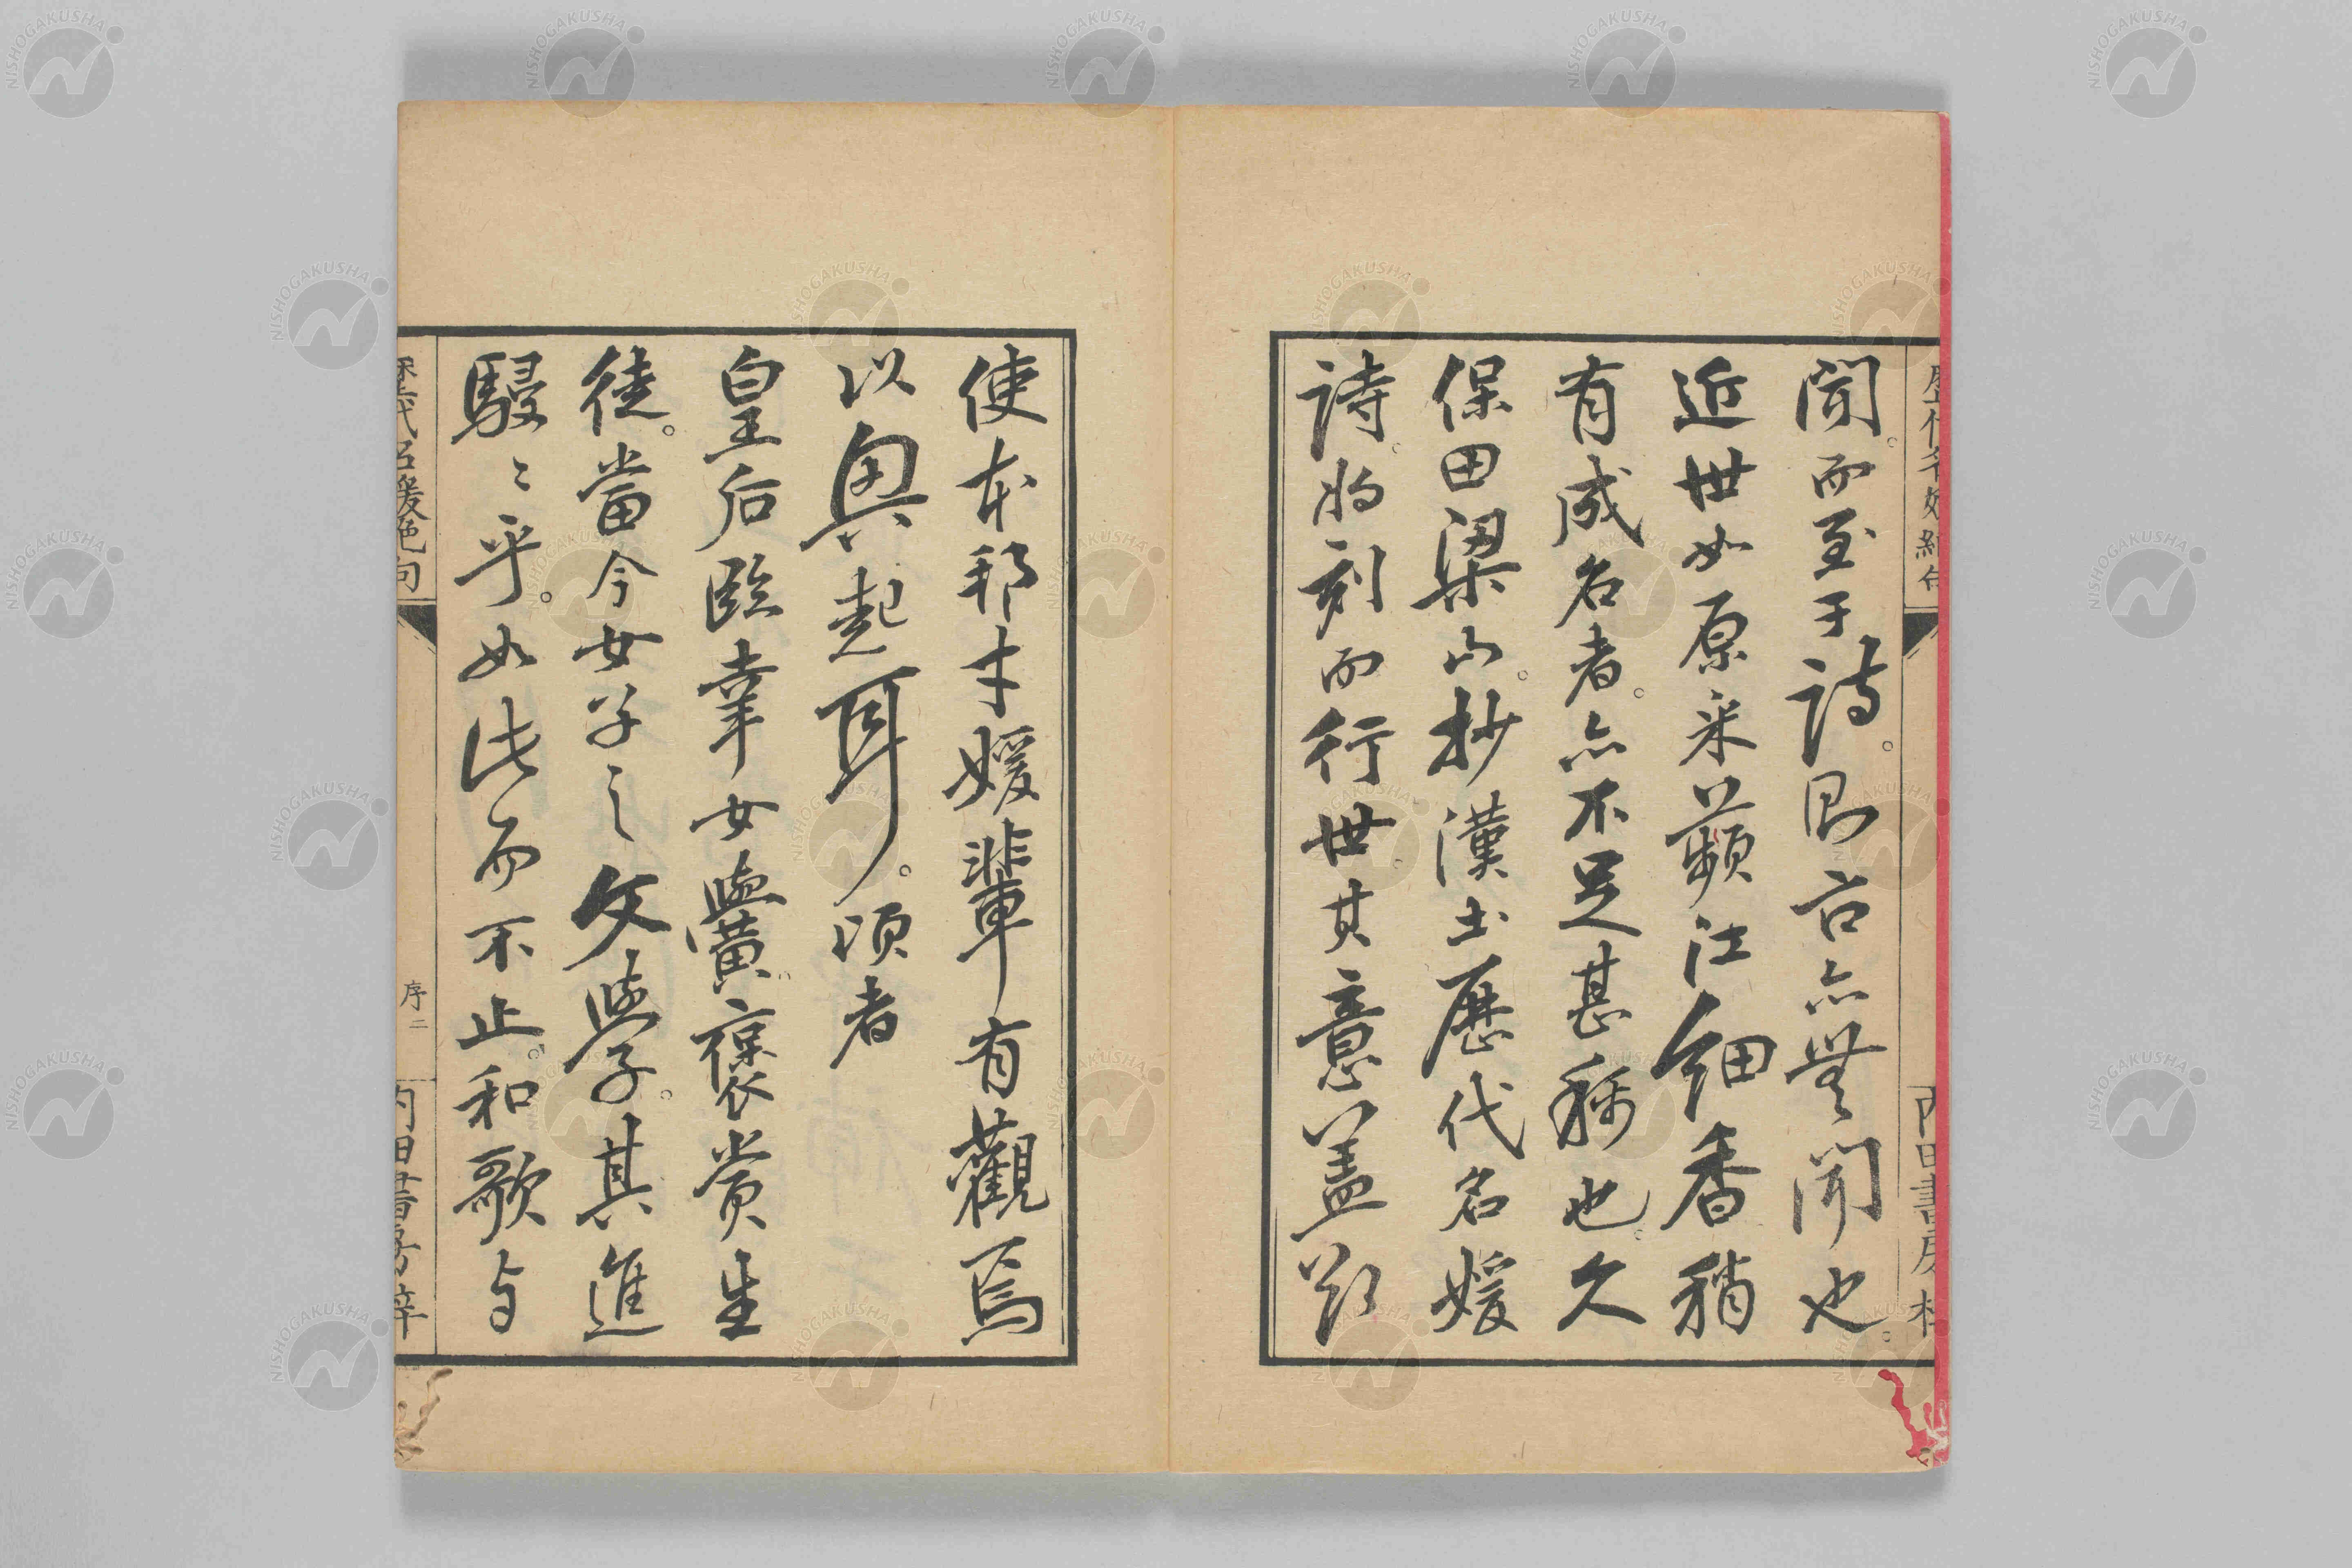 聞。而至于詩。則古亦無聞也。
近世如原采蘋江細香稍
有成名者。亦不足甚稱也。久
保田梁山。抄漢土歷代名媛
詩。将刻而行世。其意蓋欲
使本邦才媛輩有觀焉
以興起耳。頃者
皇后臨幸女學黌。褒賞生
徒。當今女子之文學。其進
駸〻乎。如此而不止。和歌与
歷代名媛絶句
序二
內田書房梓
NISHOGAKUSHA